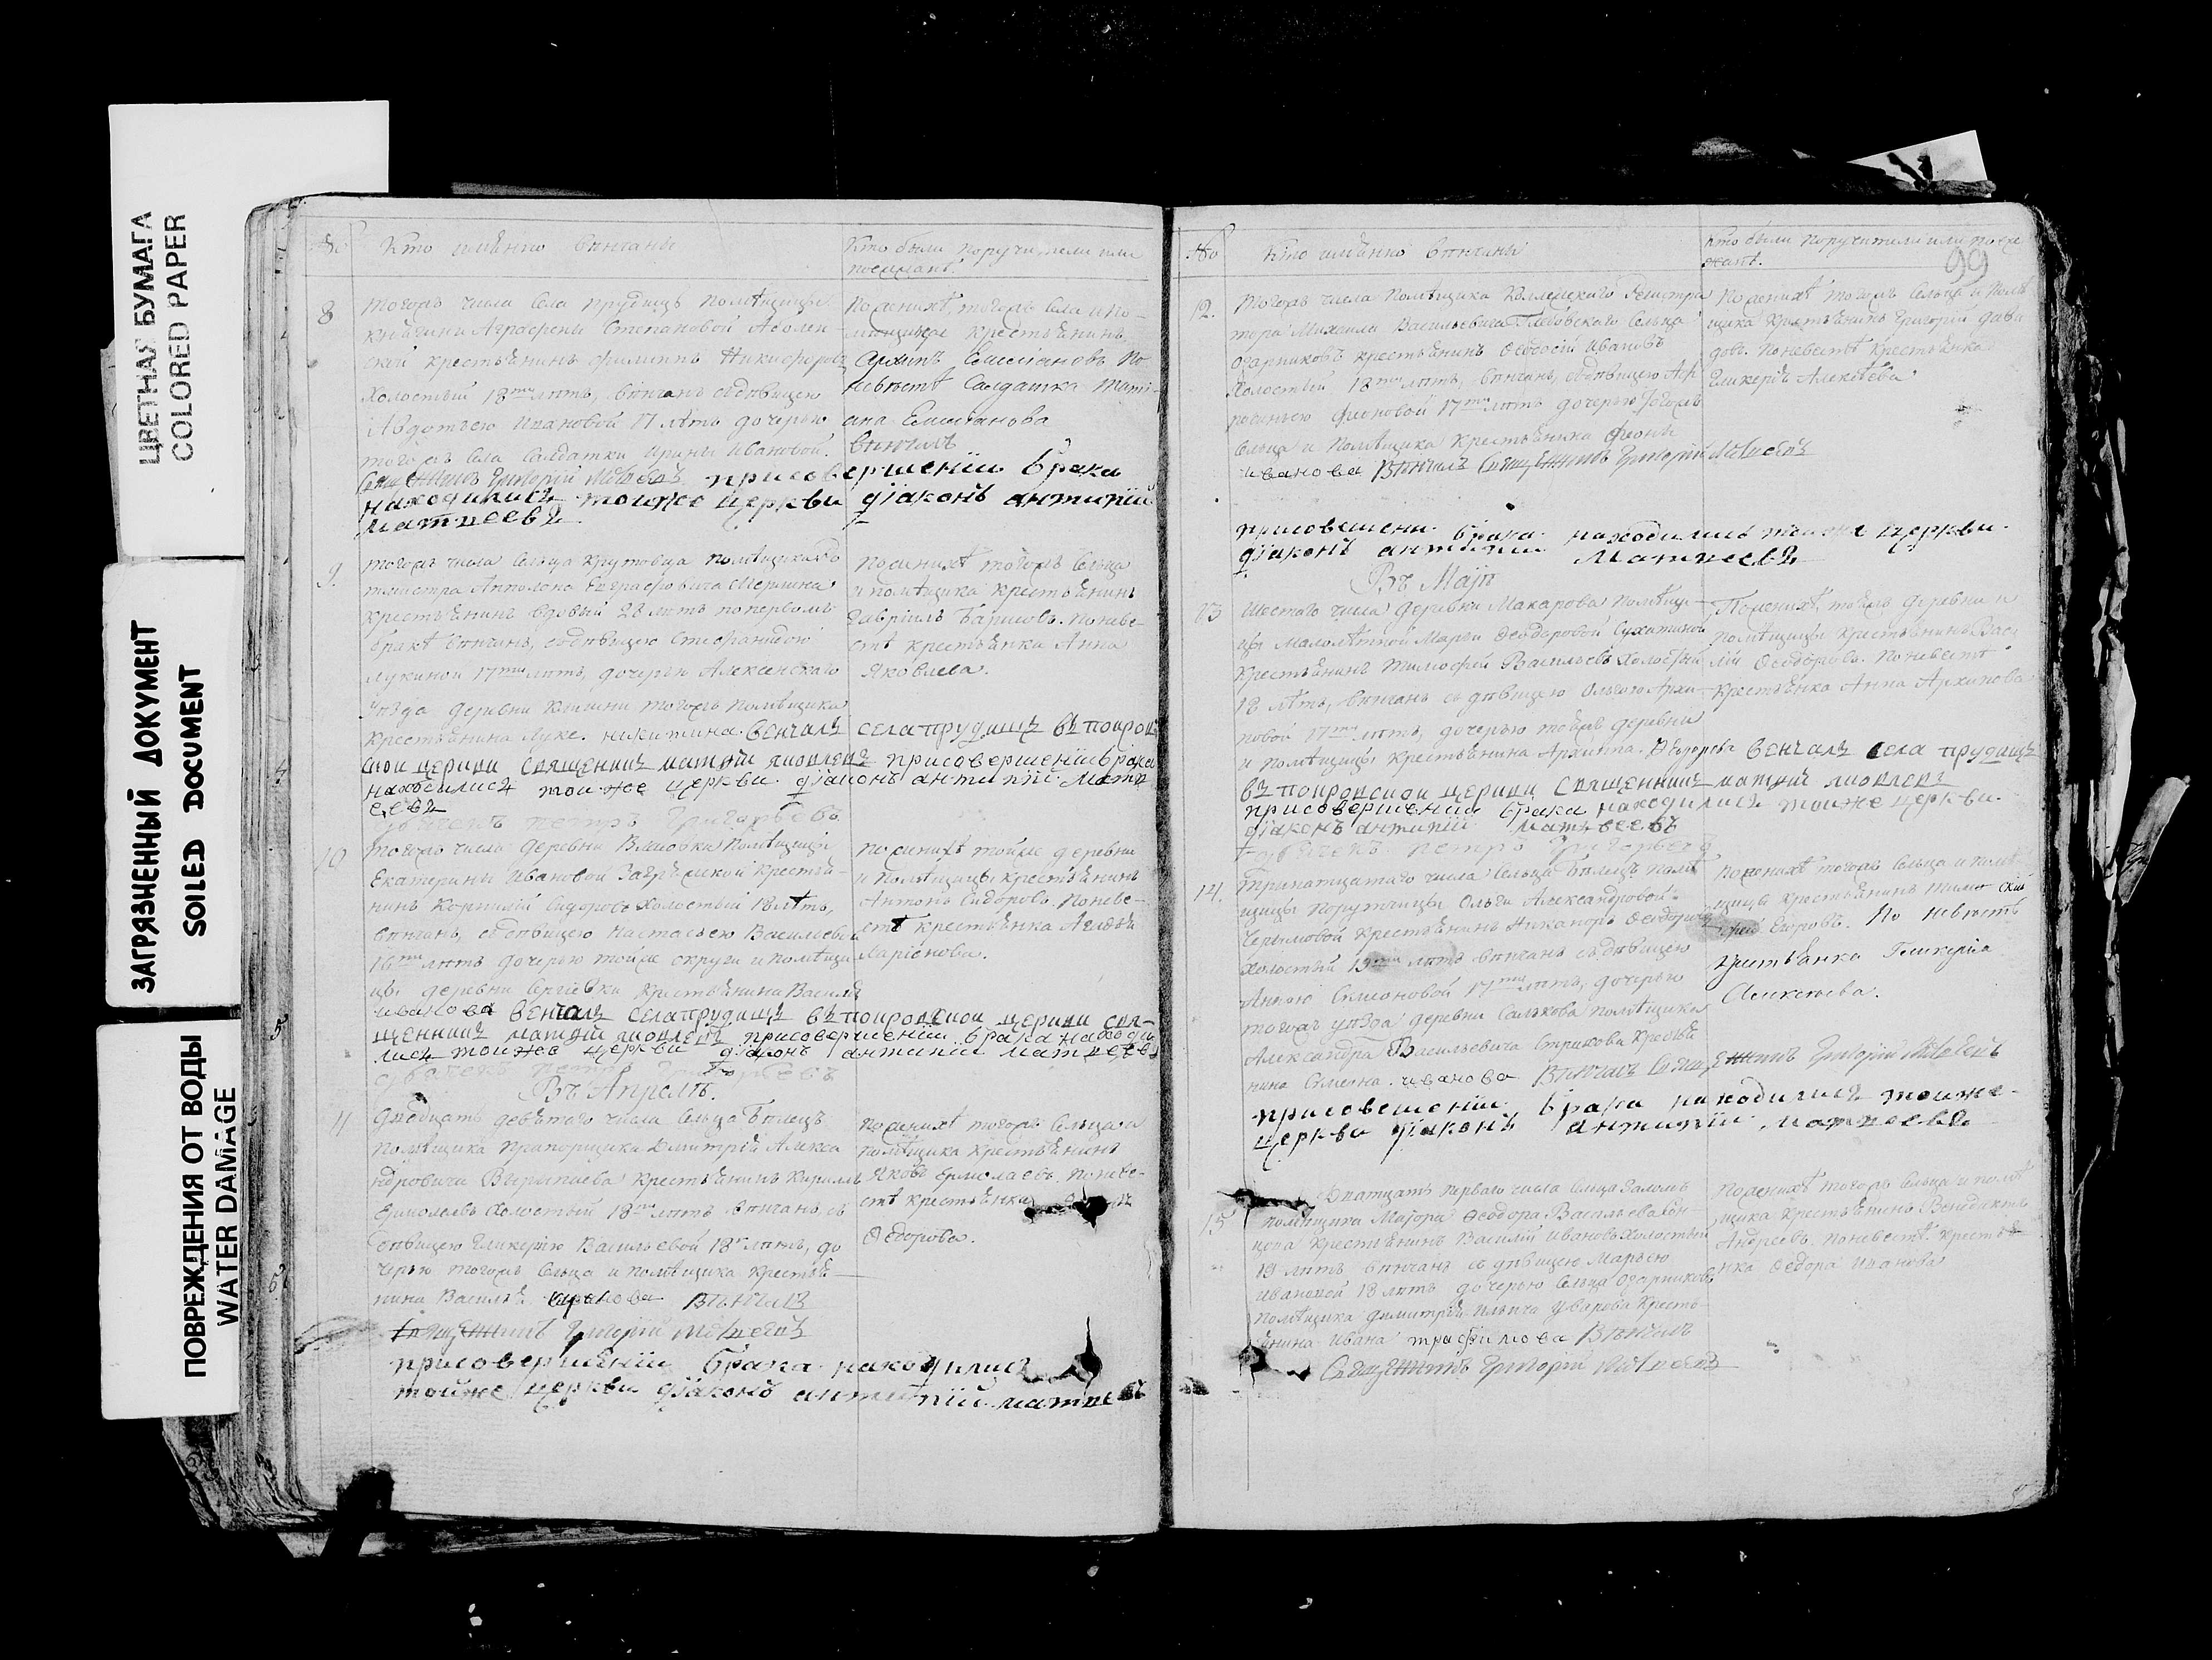 ЦВЕТНАЯ БУМАГА
COLORED PAPER
ЗАГРЯЗНЕННЫЙ ДОКУМЕНТ
SOILED DOCUMENT
ПОВРЕЖДЕНИЯ ОТ ВОДЫ
WATER DAMAGE
№
Кто имѣнно вѣнчаны
Кто были поручители или
поезжанѣ.
8
Тогожъ числа села Прудищъ помѣщицы
княгини Аграфены Степановой Аболен-
ской крестьянинъ Филиппъ Никифоровъ
холостый 18ти лѣтъ, вѣнчанъ съ дѣвицею
Авдотьею Ивановой 17 лѣтъ дочерью
тогожъ села салдатки Ирины Ивановой.
вѣнчалъ
Священникъ Григорій Матвѣевъ присовершеніи брака
находились тоиже церкви діаконъ антипіи
матвеевъ
По женихѣ, тогожъ села и по-
мѣщицы крестьянинъ
Архипъ по
невѣстѣ салдатка Тати-
ана
9
тогожъ числа сельца Крутовца помѣщика
Апполона Евграфовича
крестьянинъ вдовый 28 лѣтъ по первомъ
бракѣ вѣнчанъ, съ дѣвицею Стефанидою
Лукиной 17ти лѣтъ, дочерью Алексенскаго
уѣзда деревни тогожъ помѣщика
крестьянина Луке. никитина венчалъ села прудищъ въ покров
скои церкви священникъ матфіи яковлевъ присовершеніи брака
находились тои же церкви діаконъ антипіи матв
еевъ
дьячекъ петръ Григорьевъ
По женихѣ тогожъ сельца
и помѣщика крестьянинъ
Гаврилъ Барисовъ. По неве-
стѣ крестьянка Анна
Яковлева.
10
тогожъ числа деревни помѣщицы
Екатерины Ивановой крестья-
нинъ Корнилій Сидоровъ холостый 18 лѣтъ,
вѣнчанъ, съ дѣвицею Настасьею Васильевой
16ти лѣтъ дочерью тойже округи и помѣщи
цы деревни Сергіевки крестьянина Василья
иванова венчалъ села прудищъ въ покровскои церкви свя-
щенникъ матфіи яковлевъ присовершеніи брака находи
лись тои же церкви діаконъ антипіи матвеевъ
дьячекъ петръ Григорьевъ
по женихѣ тойже деревни
и помѣщицы крестьянинъ
Антонъ Сидоровъ. По неве-
стѣ крестьянка
Ларіонова.
Въ Апрелѣ.
11
Двадцать девятого числа сельца
помѣщика прапорщика Дмитрія Алекса
ндровича крестьянинъ Кирилъ
Ермолаевъ холостый 18ти лѣтъ вѣнчанъ, съ
дѣвицею Гликеріею Васильевой 18ти лѣтъ, до
черью тогожъ сельца и помѣщика крестья-
нина Василья вѣнчалъ
Священникъ Григорій Матвѣевъ
присовершеніи брака находились
тойже церкви діаконъ антипіи матвеевъ
По женихѣ тогожъ сельца и
помѣщика крестьянинъ
Яковъ Ермолаевъ. По неве-
стѣ крестьянка
Ѳедорова.
№
Кто имѣнно вѣнчаны
Кто были поручители или поезжанѣ.
99
12.
Тогожъ числа помѣщика Коллежскаго Регистра
тора Михаила Васильевича сельца
Озарниковъ крестьянинъ Ѳеодосій Ивановъ
холостый 18ти лѣтъ, вѣнчанъ, съ дѣвицею
Фионовой 17ти лѣтъ дочерью тогожъ
сельца и помѣщика крестьянина Фиона
иванова Вѣнчалъ Священникъ Григорій Матвѣевъ
присовешени брака находились тоиже церкви
діаконъ антипіи матвеевъ
По женихѣ тогожъ сельца и помѣ
щика крестьянинъ Григорій Дави
довъ. По невестѣ крестьянка
Гликерія Алексѣева.
Въ Маіѣ
13
Шестаго числа деревни Макарова помѣщи-
цы малолѣтной Марьи Ѳеодоровой Сухотиной
крестьянинъ Тимофей Васильевъ холостый
18 лѣтъ, вѣнчанъ съ дѣвицею Ольгою Архи-
повой 17ти лѣтъ, дочерью тойже деревни
и помѣщицы крестьянина Архиппа. Ѳеодорова венчалъ села прудищъ
въ покровскои церкви священникъ матфіи яковлевъ
присовершеніи брака находились тоиже церкви
діаконъ антипіи матвеевъ
дьячекъ петръ Григорьевъ
По женихѣ, тойжъ деревни и
помѣщицы крестьянинъ Васи
лій Ѳеодоровъ. По невестѣ
крестьянка Анна Архипова
14.
Тринатцатаго числа сельца помѣ
щицы порутчицы Ольги Александровой
крестьянинъ Никаноръ Ѳеодоровъ
холостый 19ти лѣтъ вѣнчанъ съ дѣвицею
Анною Симоновой 17ти лѣтъ, дочерью
тогожъ уѣзда деревни Салькова помѣщика
Александра Васильевича Стрикова крестья
нина Симеона. иванова Вѣнчалъ Священникъ Григорій Матвѣевъ
присовешеніи брака находились тоиже
церкви діаконъ антипіи матвеевъ
По женихѣ тогожъ сельца и помѣ
щицы крестьянинъ Тимо
фей Егоровъ. По невѣстѣ
крестьянка Гликерія
Алексѣева.
15
Дватцать перваго числа сельца
помѣщика Маіора Ѳеодора Васильева
крестьянинъ Василій Ивановъ холостый
19 лѣтъ вѣнчанъ съ дѣвицею Марьею
Ивановой 18 лѣтъ дочерью сельца Озарниковъ
помѣщика Димитрія Ильича Уварова кресть-
янина Ивана трафимова Вѣнчалъ
Священникъ Григорій Матвѣевъ
По женихѣ тогожъ сельца и помѣ
щика крестьянинъ Венидиктъ
Андреевъ. По невестѣ. крестья
нка Федора Иванова